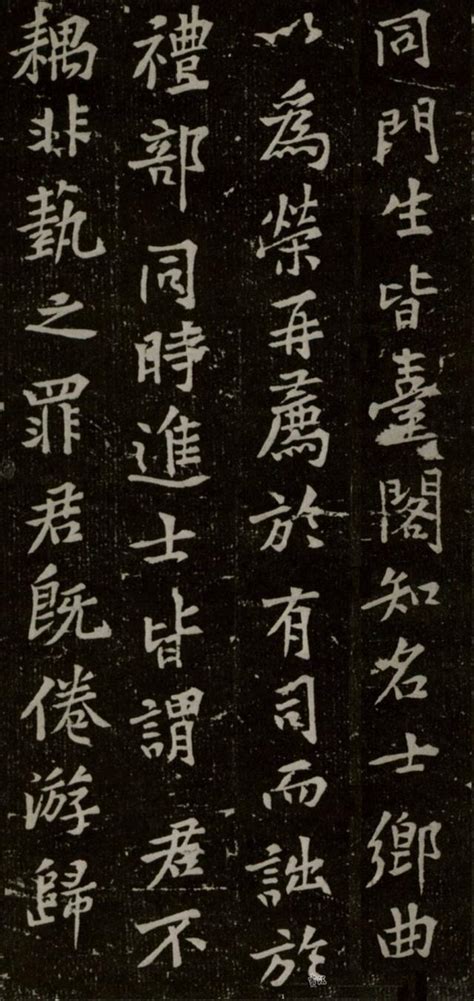 同門生皆臺閣知名士鄉曲
以為榮再薦於有司而詘於
禮部同時進士皆謂君不
耦非藝之罪君既倦游歸